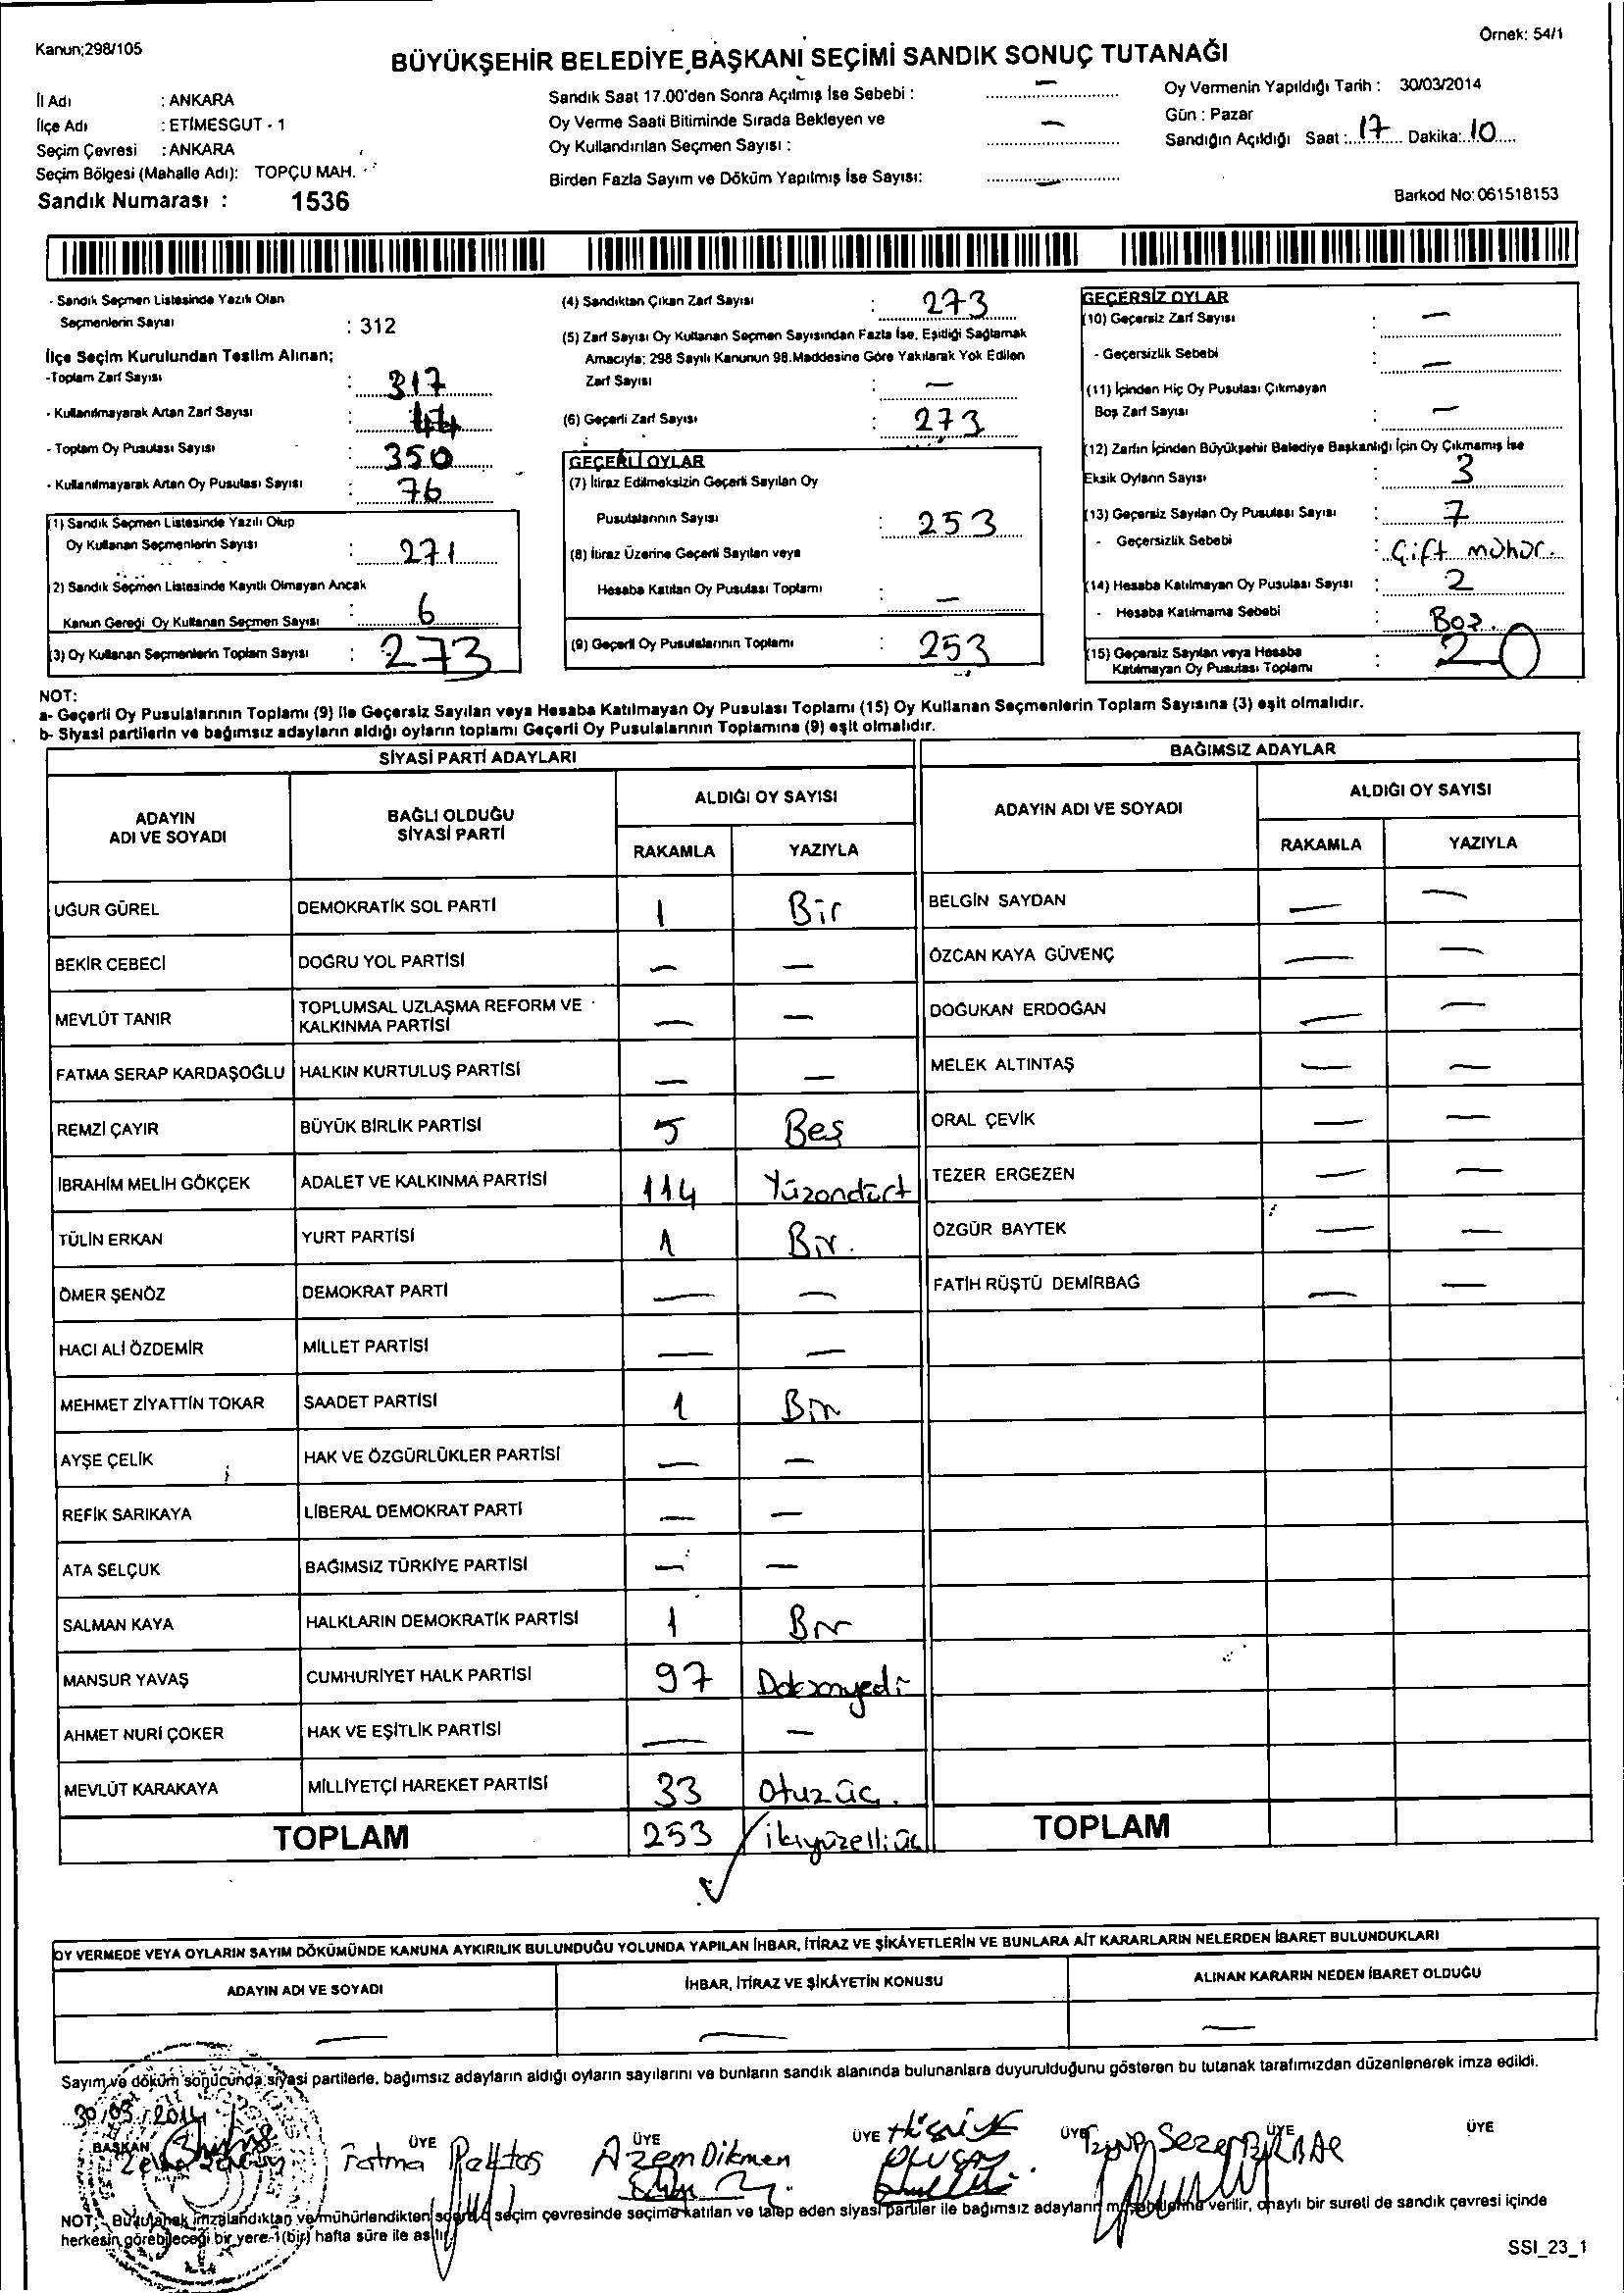 Kanun;298/105
Örnek: 54/1
BÜYÜKŞEHİR BELEDİYE BAŞKANI SEÇİMİ SANDIK SONUÇ TUTANAĞI
İl Adı : ANKARA
İlçe Adı : ETİMESGUT - 1
Seçim Çevresi : ANKARA
Seçim Bölgesi (Mahalle Adı): TOPÇU MAH.
Sandık Numarası : 1536
Sandık Saat 17.00'den Sonra Açılmış İse Sebebi : —
Oy Verme Saati Bitiminde Sırada Bekleyen ve
Oy Kullandırılan Seçmen Sayısı : —
Birden Fazla Sayım ve Döküm Yapılmış İse Sayısı: —
Oy Vermenin Yapıldığı Tarih : 30/03/2014
Gün : Pazar
Sandığın Açıldığı Saat : 17 Dakika: 10
Barkod No: 061518153
- Sandık Seçmen Listesinde Yazılı Olan
Seçmenlerin Sayısı : 312
İlçe Seçim Kurulundan Teslim Alınan;
-Toplam Zarf Sayısı : 317
- Kullanılmayarak Artan Zarf Sayısı : 44
- Toplam Oy Pusulası Sayısı : 350
- Kullanılmayarak Artan Oy Pusulası Sayısı : 76
(1) Sandık Seçmen Listesinde Yazılı Olup
Oy Kullanan Seçmenlerin Sayısı : 271
2) Sandık Seçmen Listesinde Kayıtlı Olmayan Ancak
Kanun Gereği Oy Kullanan Seçmen Sayısı : 6
(3) Oy Kullanan Seçmenlerin Toplam Sayısı : 273
(4) Sandıktan Çıkan Zarf Sayısı : 273
(5) Zarf Sayısı Oy Kullanan Seçmen Sayısından Fazla İse, Eşitliği Sağlamak
Amacıyla; 298 Sayılı Kanunun 98.Maddesine Göre Yakılarak Yok Edilen
Zarf Sayısı : —
(6) Geçerli Zarf Sayısı : 273
GEÇERLİ OYLAR
(7) İtiraz Edilmeksizin Geçerli Sayılan Oy
Pusulalarının Sayısı : 253
(8) İtiraz Üzerine Geçerli Sayılan veya
Hesaba Katılan Oy Pusulası Toplamı : —
(9) Geçerli Oy Pusulalarının Toplamı : 253
GEÇERSİZ OYLAR
(10) Geçersiz Zarf Sayısı : —
- Geçersizlik Sebebi : —
(11) İçinden Hiç Oy Pusulası Çıkmayan
Boş Zarf Sayısı : —
(12) Zarfın İçinden Büyükşehir Belediye Başkanlığı İçin Oy Çıkmamış İse
Eksik Oyların Sayısı : 3
(13) Geçersiz Sayılan Oy Pusulası Sayısı : 7
- Geçersizlik Sebebi : Çift mühür.
(14) Hesaba Katılmayan Oy Pusulası Sayısı : 2
- Hesaba Katılmama Sebebi : Boş.
(15) Geçersiz Sayılan veya Hesaba
Katılmayan Oy Pusulası Toplamı : 20
NOT:
a- Geçerli Oy Pusulalarının Toplamı (9) İle Geçersiz Sayılan veya Hesaba Katılmayan Oy Pusulası Toplamı (15) Oy Kullanan Seçmenlerin Toplam Sayısına (3) eşit olmalıdır.
b- Siyasi partilerin ve bağımsız adayların aldığı oyların toplamı Geçerli Oy Pusulalarının Toplamına (9) eşit olmalıdır.
SİYASİ PARTİ ADAYLARI
BAĞIMSIZ ADAYLAR
ADAYIN
ADI VE SOYADI
BAĞLI OLDUĞU
SİYASİ PARTİ
ALDIĞI OY SAYISI
RAKAMLA YAZIYLA
ADAYIN ADI VE SOYADI
ALDIĞI OY SAYISI
RAKAMLA YAZIYLA
UĞUR GÜREL DEMOKRATİK SOL PARTİ 1 Bir BELGİN SAYDAN — —
BEKİR CEBECİ DOĞRU YOL PARTİSİ — — ÖZCAN KAYA GÜVENÇ — —
MEVLÜT TANIR TOPLUMSAL UZLAŞMA REFORM VE
KALKINMA PARTİSİ — — DOĞUKAN ERDOĞAN — —
FATMA SERAP KARDAŞOĞLU HALKIN KURTULUŞ PARTİSİ — — MELEK ALTINTAŞ — —
REMZİ ÇAYIR BÜYÜK BİRLİK PARTİSİ 5 Beş ORAL ÇEVİK — —
İBRAHİM MELİH GÖKÇEK ADALET VE KALKINMA PARTİSİ 114 Yüzondört TEZER ERGEZEN — —
TÜLİN ERKAN YURT PARTİSİ 1 Bir. ÖZGÜR BAYTEK — —
ÖMER ŞENÖZ DEMOKRAT PARTİ — — FATİH RÜŞTÜ DEMİRBAĞ — —
HACI ALİ ÖZDEMİR MİLLET PARTİSİ — —
MEHMET ZİYATTİN TOKAR SAADET PARTİSİ 1 Bir
AYŞE ÇELİK HAK VE ÖZGÜRLÜKLER PARTİSİ — —
REFİK SARIKAYA LİBERAL DEMOKRAT PARTİ — —
ATA SELÇUK BAĞIMSIZ TÜRKİYE PARTİSİ — —
SALMAN KAYA HALKLARIN DEMOKRATİK PARTİSİ 1 Bir
MANSUR YAVAŞ CUMHURİYET HALK PARTİSİ 97 Doksanyedi
AHMET NURİ ÇOKER HAK VE EŞİTLİK PARTİSİ — —
MEVLÜT KARAKAYA MİLLİYETÇİ HAREKET PARTİSİ 33 Otuzüç.
TOPLAM 253 ikiyüzelliüç TOPLAM
OY VERMEDE VEYA OYLARIN SAYIM DÖKÜMÜNDE KANUNA AYKIRILIK BULUNDUĞU YOLUNDA YAPILAN İHBAR, İTİRAZ VE ŞİKÂYETLERİN VE BUNLARA AİT KARARLARIN NELERDEN İBARET BULUNDUKLARI
ADAYIN ADI VE SOYADI İHBAR, İTİRAZ VE ŞİKÂYETİN KONUSU ALINAN KARARIN NEDEN İBARET OLDUĞU
— — —
Sayım ve döküm sonucunda siyasi partilerle, bağımsız adayların aldığı oyların sayılarını ve bunların sandık alanında bulunanlara duyurulduğunu gösteren bu tutanak tarafımızdan düzenlenerek imza edildi.
30/03/2014
BAŞKAN ÜYE ÜYE ÜYE ÜYE ÜYE ÜYE
Fatma Azem Dikmen Sezer
NOT: Bu tutanak imzalandıktan ve mühürlendikten sonra seçim çevresinde seçime katılan ve talep eden siyasi partiler ile bağımsız adayların müşahitlerine verilir, onaylı bir sureti de sandık çevresi içinde
herkesin görebileceği bir yere 1(bir) hafta süre ile asılır.
SSI_23_1